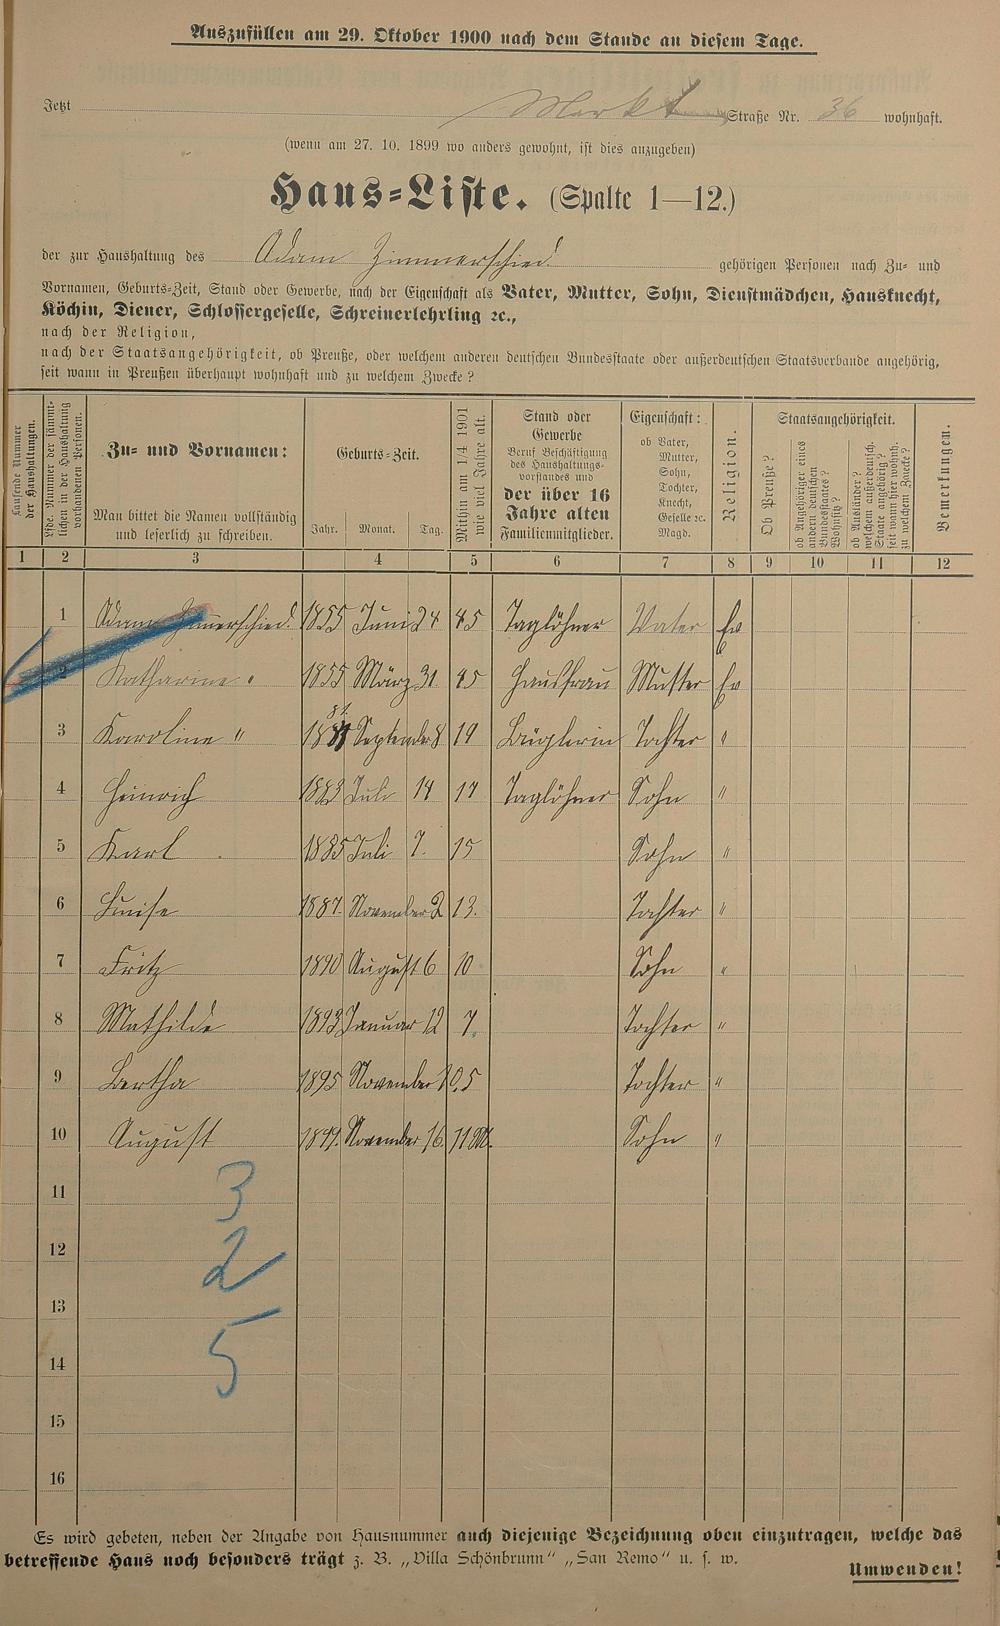 Auszufüllen am 29. Oktober 1900 nach dem Stande an diesem Tage.
Jetzt Markt Straße Nr. 36 wohnhaft.
(wenn am 27. 10. 1899 wo anders gewohnt, ist dies anzugeben)
Haus-Liste. (Spalte 1—12.)
der zur Haushaltung des Adam Zimmerschied. gehörigen Personen nach Zu- und
Vornamen, Geburts-Zeit, Stand oder Gewerbe, nach der Eigenschaft als Vater, Mutter, Sohn, Dienstmädchen, Hausknecht,
Köchin, Diener, Schlossergeselle, Schreinerlehrling ꝛc.,
nach der Religion,
nach der Staatsangehörigkeit, ob Preuße, oder welchem anderen deutschen Bundesstaate oder außerdeutschen Staatsverbande angehörig,
seit wann in Preußen überhaupt wohnhaft und zu welchem Zwecke?
Laufende Nummer
der Haushaltungen.
Lfde. Nummer der sämmt-
lichen in der Haushaltung
vorhandenen Personen.
Zu- und Vornamen:
Man bittet die Namen vollständig
und leserlich zu schreiben.
Geburts-Zeit.
Jahr. Monat. Tag.
Mithin am 1/4 1901
wie viel Jahre alt.
Stand oder
Gewerbe
Beruf Beschäftigung
des Haushaltungs-
vorstandes und
der über 16
Jahre alten
Familienmitglieder.
Eigenschaft:
ob Vater,
Mutter,
Sohn,
Tochter,
Knecht,
Geselle ꝛc.
Magd.
Religion.
Staatsangehörigkeit.
Ob Preuße?
ob Angehöriger eines
andern deutschen
Bundesstaates?
ob Ausländer?
welchem außerdeutsch.
Staate angehörig?
seit wann hier wohnh.
zu welchem Zwecke?
Bemerkungen.
1 2 3 4 5 6 7 8 9 10 11 12
1 Adam Zimmerschied. 1855 Juni 24 45 Taglöhner Vater Ev
2 Katharine " 1855 März 31 45 Hausfrau Mutter Ev
81.
3 Karoline " 1881 September 8 19 Büglerin Tochter "
4 Heinrich 1883 Juli 14 17 Taglöhner Sohn "
5 Karl 1885 Juli 7. 15 Sohn "
6 Luise 1887. November 2 13. Tochter "
7 Fritz 1890 August 6 10 Sohn "
8 Mathilde 1893 Januar 12 7. Tochter "
9 Bertha 1895 November 10. 5 Tochter "
10 August 1899. November 16. 11 M. Sohn "
11 3
12 2
13
14 5
15
16
Es wird gebeten, neben der Angabe von Hausnummer auch diejenige Bezeichnung oben einzutragen, welche das
betreffende Haus noch besonders trägt z. B. „Villa Schönbrunn“ „San Remo“ u. s. w.
Umwenden!